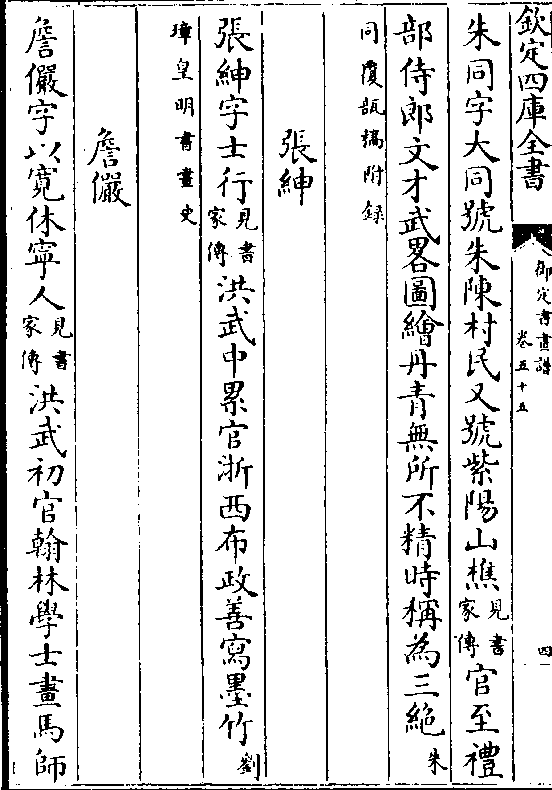 欽定四庫全書
御定書畫譜
卷五十五
四
朱同字大同號朱陳村民又號紫陽山樵見書家傳官至禮
部侍郎文才武畧圖繪丹青無所不精時稱為三絶朱
同覆瓿稿附録
張紳
張紳字士行見書家傳洪武中累官浙西布政善寫墨竹劉
璋皇明書畫史
詹儼
詹儼字以寛休寧人見書家傳洪武初官翰林學士畫馬師